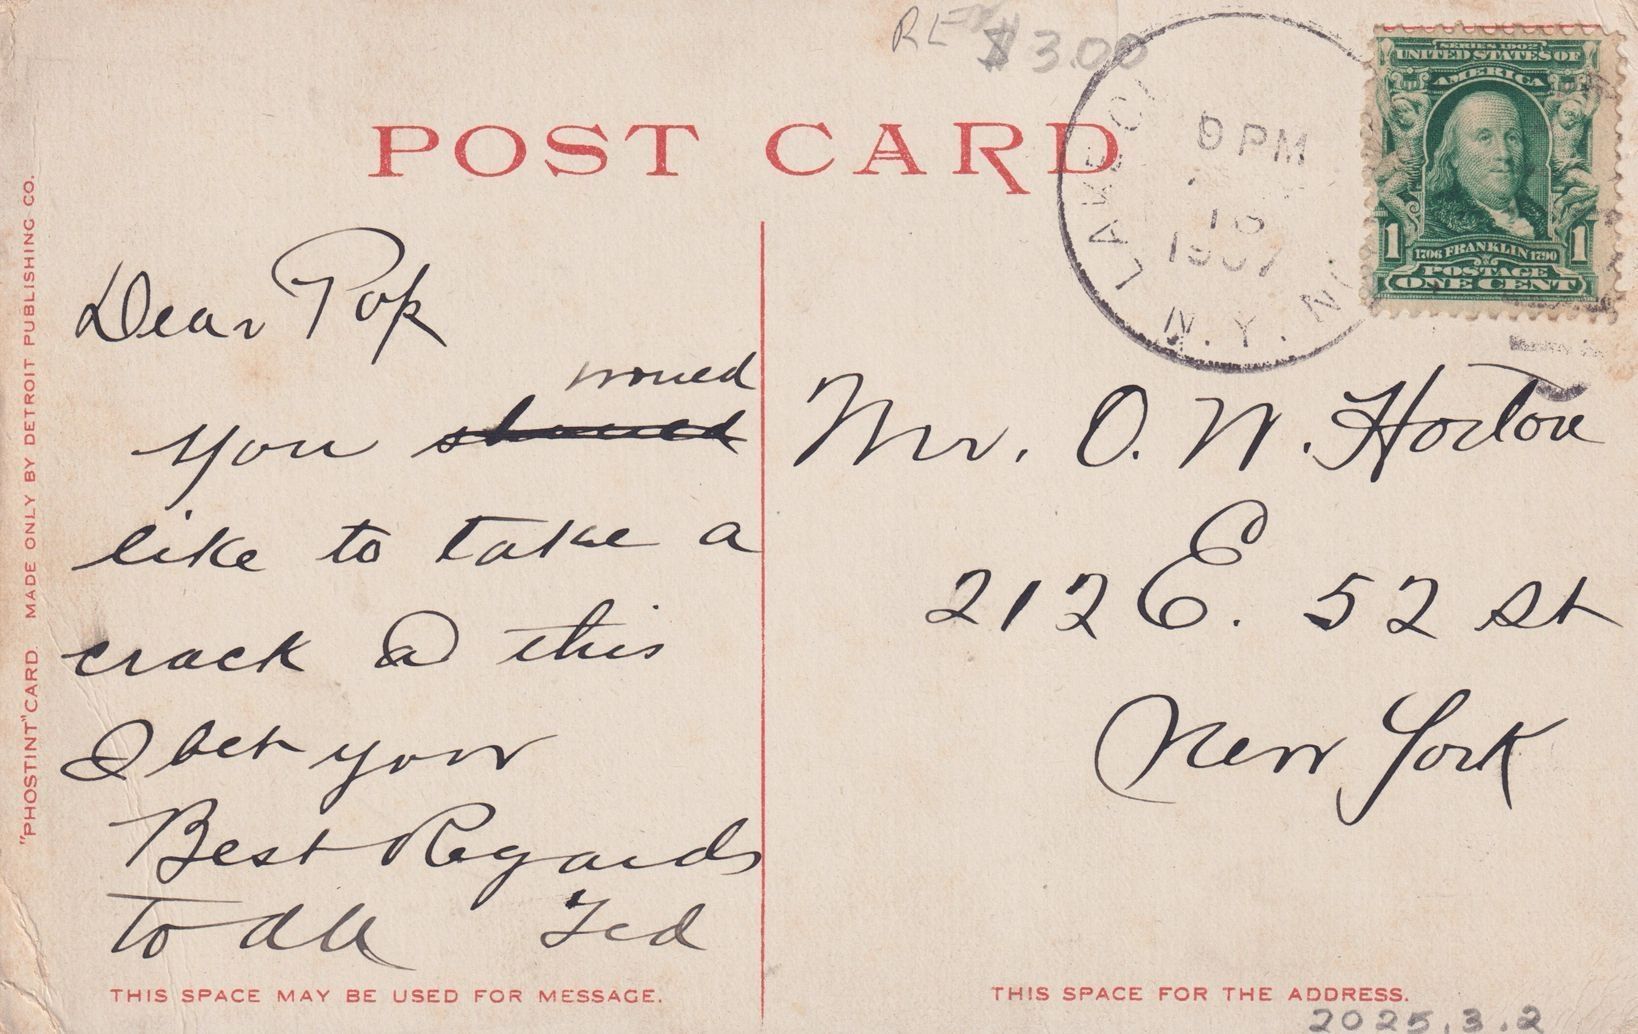 RE $3.00
POST CARD
SERIES 1902
UNITED STATES OF
AMERICA
1 1706 FRANKLIN 1790 1
POSTAGE
ONE CENT
LAKE
9 PM
1907
N.Y.
"PHOSTINT" CARD MADE ONLY BY DETROIT PUBLISHING CO.
Dear Pop
would
you should
like to take a
crack @ this
I bet your
Best Regards
to all Ted
Mr. O. W. Horton
212 E. 52 St
New York
THIS SPACE MAY BE USED FOR MESSAGE.
THIS SPACE FOR THE ADDRESS.
2025.3.2